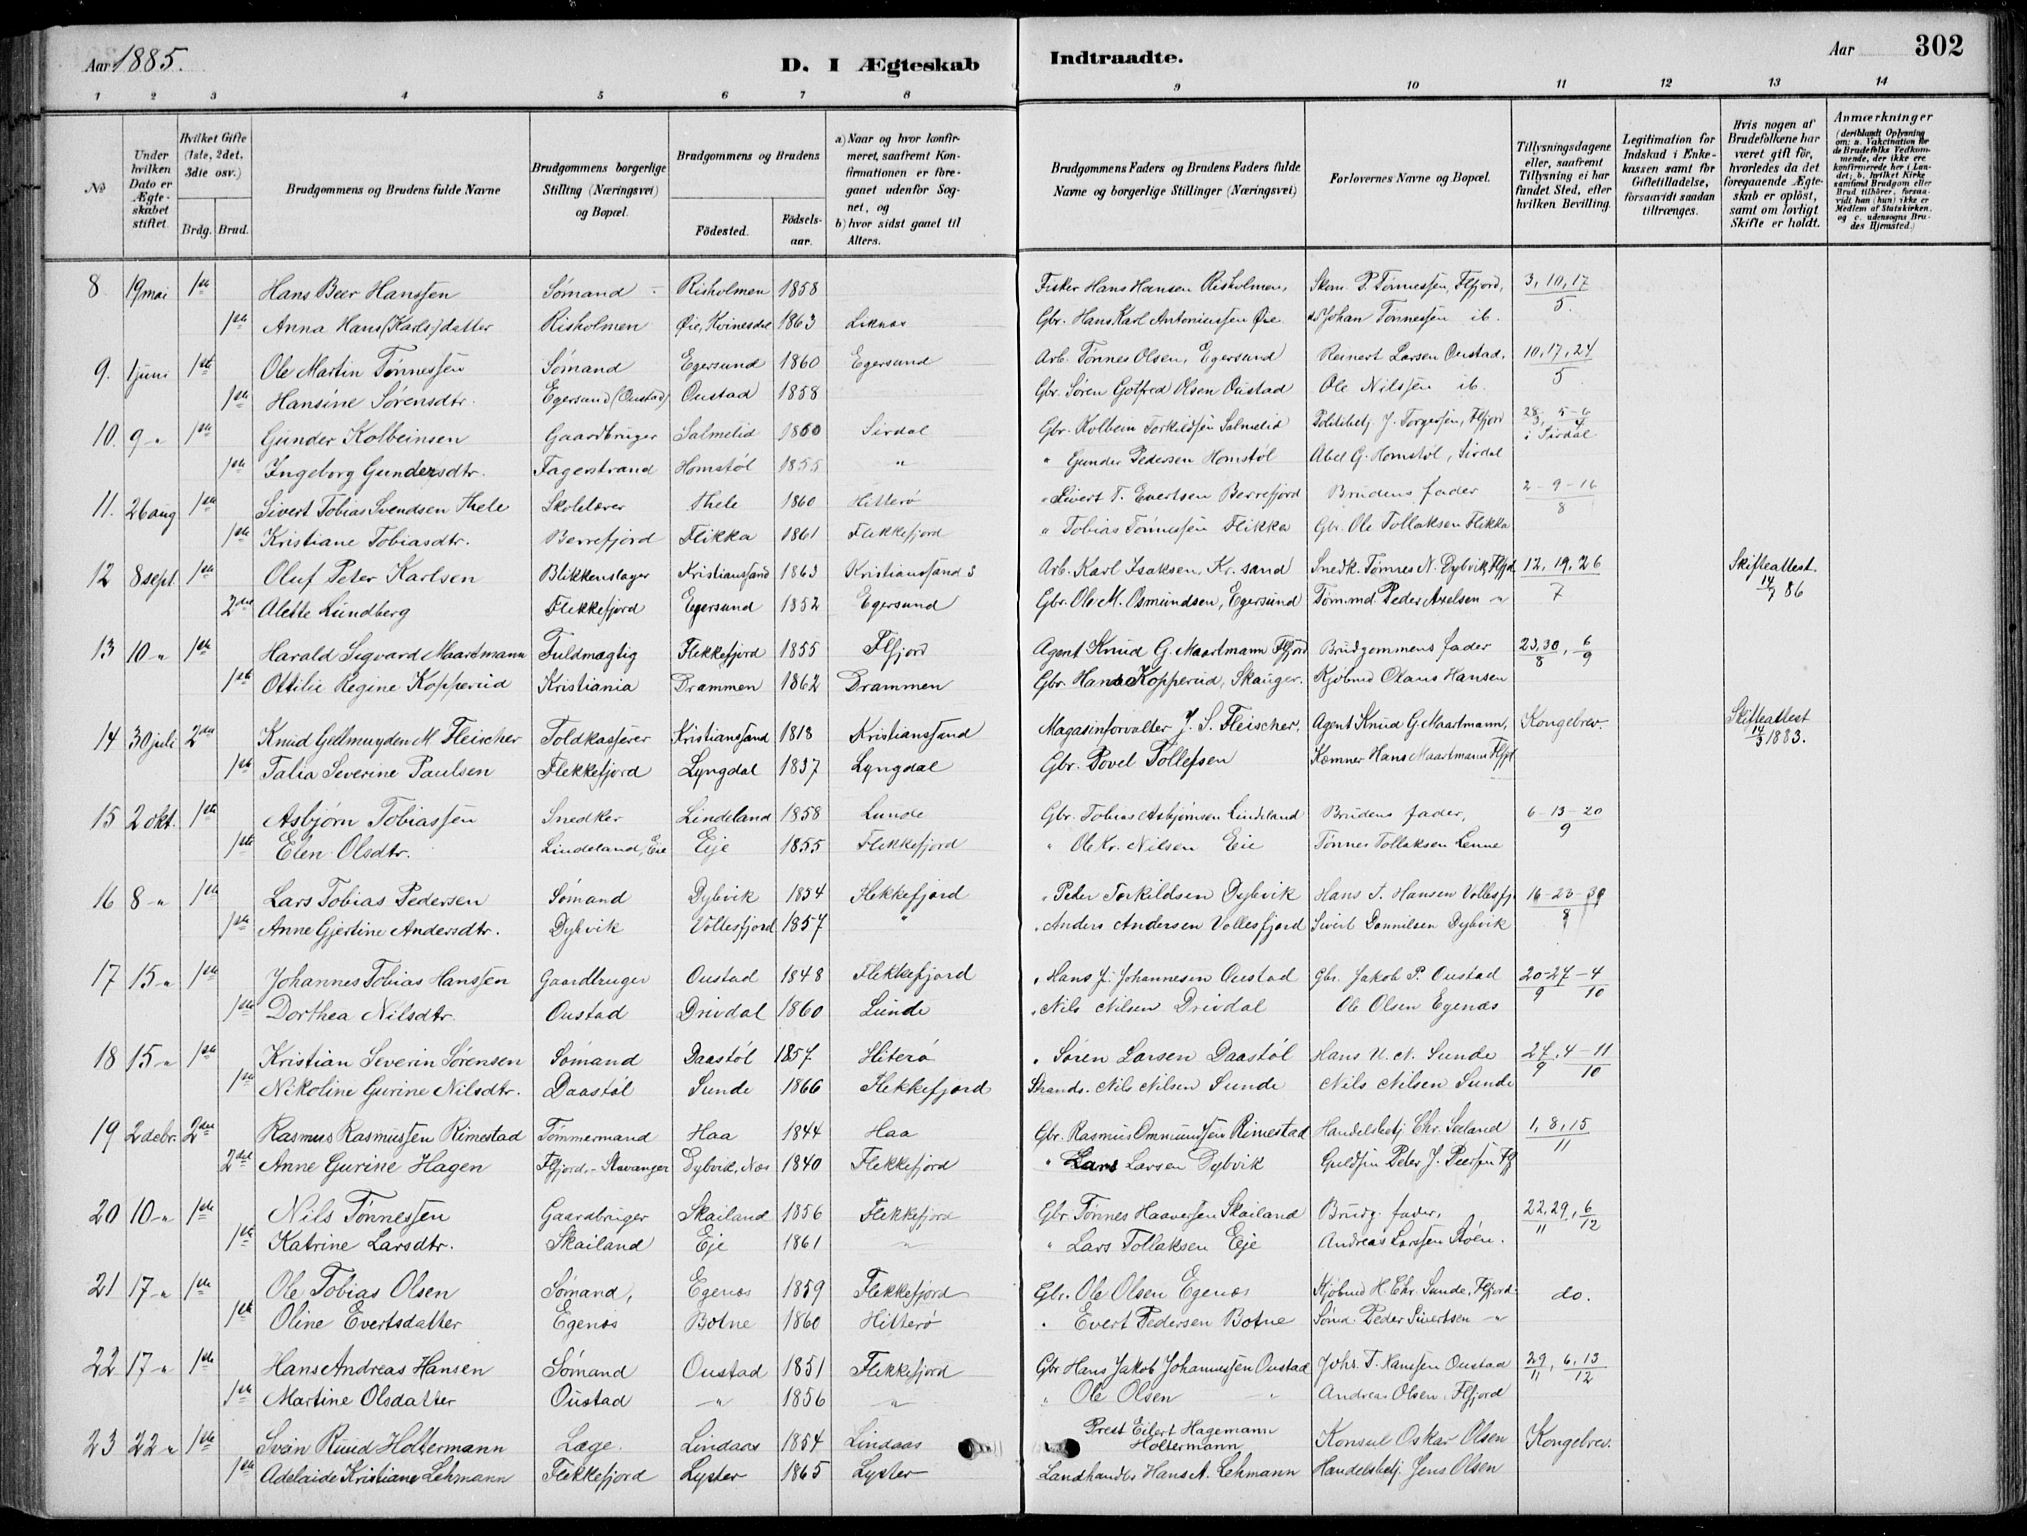 Aar 1885.
D. I Ægteskab Indtraadte.
Aar 302
1 2 3 4 5 6 7 8 9 10 11 12 13 14
№
Under hvilken Dato er Ægteskabet stiftet.
Hvilket Gifte (1ste, 2det, 3die osv.)
Brdg. Brud.
Brudgommens og Brudens fulde Navne
Brudgommens borgerlige Stilling (Næringsvei) og Bopæl.
Brudgommens og Brudens
Fødested. Fødselsaar.
a) Naar og hvor konfirmeret, saafremt Konfirmationen er foregaaet udenfor Sognet, og
b) hvor sidst gaaet til Alters.
Brudgommens Faders og Brudens Faders fulde Navne og borgerlige Stillinger (Næringsvei)
Forlovernes Navne og Bopæl.
Tillysningsdagene eller, saafremt Tillysning ei har fundet Sted, efter hvilken Bevilling.
Legitimation for Indskud i Enkekassen samt for Giftetilladelse, forsaavidt saadan tiltrænges.
Hvis nogen af Brudefolkene har været gift før, hvorledes da det foregaaende Ægteskab er opløst, samt om lovligt Skifte er holdt.
Anmærkninger (deriblandt Oplysning om: a. Vakcination for de Brudefolks Vedkommende, der ikke ere konfirmerede her i Landet; b. hvilket Kirkesamfund Brudgom eller Brud tilhører, forsaavidt han (hun) ikke er Medlem af Statskirken. og c. udensogns Brudes Hjemsted.)
8 19 mai 1ste Hans Beer Hanssen Sømand Risholmen 1858 Fisker Hans Hansen Risholmen, Skom. P. Tønnessen, Flfjord, 3, 10, 17/5.
1ste Anna Hans (Karls)datter Risholmen Øie, Kvinesdal 1863 Liknæs Gbr. Hans Karl Antoniussen Øie Johan Tønnessen ib.
9. 1 juni 1ste Ole Martin Tønnessen Sømand Egersund 1860 Egersund Arb. Tønnes Olsen, Egersund Reinert Larsen Oustad, 10, 17, 24/5
1ste Hansine Sørensdtr. Egersund (Oustad) Oustad 1858 Gbr. Søren Gotfred Olsen Oustad Ole Nilssen ib.
10. 9 " 1ste Gunder Kolbeinsen Gaardbruger Salmelid 1860 Sirdal Gbr. Kolbein Torkildsen Salmelid Politibetj. J. Torgersen, Flfjord 28/3, 5-6/4 i Sirdal
1ste Ingeborg Gundersdtr. Fagerstrand Homstøl 1855 " " Gunder Pedersen Homstøl Abel G. Homstøl, Sirdal
11. 26 aug 1ste Sivert Tobias Svendsen Thele Skolelærer Thele 1860 Hitterø " Sivert T. Evertsen Berrefjord Brudens fader 2-9-16/8
1ste Kristiane Tobiasdtr. Berrefjord Flikka 1861 Flekkefjord " Tobias Tønnessen Flikka Gbr. Ole Tollaksen Flikka
12 8 sept. 1ste Oluf Peter Karlsen Blikkenslager Kristianssand 1863 Kristianssand S Arb. Karl Isaksen, Kr.sand Snedk. Tønnes N. Dybvik, Flfjd 12, 19, 26/7 Skifteattest 14/7 86
2det Alette Lundberg Flekkefjord Egersund 1852 Egersund Gbr. Ole M. Osmundsen, Egersund Tøm.md Peder Axelsen "
13 10 " 1ste Harald Sigvard Maartmann Fuldmægtig Flekkefjord 1855 Flfjord Agent Knud G. Maartmann Flfjord Brudgommens fader 23, 30/8, 6/9
1ste Ottilie Regine Kopperud Kristiania Drammen 1862 Drammen Gbr. Hans Kopperud, Skauger. Kjøbmd Olaus Hansen
14 30 juli 2det Knud Gellmuyden M Fleischer Toldkasserer Kristianssand 1818 Kristianssand Magasinforvalter J. S. Fleischer, Agent Knud G. Maartmann, Kongebrev. Skifteattest 14/3 1883.
1ste Talia Severine Paulsen Flekkefjord Lyngdal 1837 Lyngdal Gbr. Povel Tollefsen Kæmner Hans Maartmann Flfjd
15 2 okt. 1ste Asbjørn Tobiassen Snedker Lindeland 1858 Lunde Gbr. Tobias Asbjørnsen Lindeland Brudens fader, 6-13-20/9
1ste Elen Olsdtr. Lindeland, Eie Eje 1855 Flekkefjord " Ole Kr. Nilsen Eie Tønnes Tollaksen Lenne
16 8 " 1ste Lars Tobias Pedersen Sømand Dybvik 1854 Flekkefjord " Peder Torkildsen Dybvik Hans S. Hansen Vollesfj. 16-23-30/8
1ste Anne Gjertine Andersdtr. Dybvik Vollesfjord 1857 " " Anders Andersen Vollesfjord Sivert Danielsen Dybvik
17 15 " 1ste Johannes Tobias Hanssen Gaardbruger Oustad 1848 Flekkefjord " Hans J. Johannesen Oustad Gbr. Jakob P. Oustad 20-27/9-4/10
1ste Dorthea Nilsdtr. Oustad Drivdal 1860 Lunde " Nils Nilsen Drivdal Ole Olsen Egenæs
18 15 " 1ste Kristian Severin Sørensen Sømand Daastøl 1857 Hiterø " Søren Larsen Daastøl Hans N. N. Sunde 27/9, 4-11/10
1ste Nikoline Gurine Nilsdtr. Daastøl Sunde 1866 Flekkefjord Strands. Nils Nilsen Sunde Nils Nilsen Sunde
19 2 debr. 2det Rasmus Rasmussen Rimestad Tømmermand Haa 1844 Haa Gbr. Rasmus Ommundsen Rimestad Handelsbetj Chr. Seeland 1, 8, 15/11
2det Anne Gurine Hagen Flfjord, - Stavanger Dybvik, Næs 1840 Flekkefjord " Lars Larsen Dybvik Guldsm Peter J. Peersen Flf
20 10 " 1ste Nils Tønnessen Gaardbruger Skailand 1856 Flekkefjord Gbr. Tønnes Haaversen Skailand Brudg. fader, 22, 29/11, 6/12
1ste Katrine Larsdtr. Skailand Eje 1861 " " Lars Tollaksen Eje Andreas Larssen Støen.
21 17 " 1ste Ole Tobias Olsen Sømand, Egenæs 1859 Flekkefjord Gbr. Ole Olsen Egenæs Kjøbmd H. Chr. Sunde, Flfjord. do.
1ste Oline Evertsdatter Egenæs Botne 1860 Hitterø " Evert Pedersen Botne Sømd. Peder Sivertsen "
22 17 " 1ste Hans Andreas Hansen Sømand Oustad 1851 Flekkefjord Gbr Hans Jakob Johannessen Oustad Johs. T. Hanssen Oustad 29/11, 6, 13/12
1ste Martine Olsdatter Oustad " 1856 " " Ole Olsen " Andreas Olsen, Flfjord
23 22 " 1ste Svan Ruud Holtermann Læge. Lindaas 1854 Lindaas Prest Eilert Hagemann Holtermann Konsul Oskar Olsen Kongebrev.
1ste Adelaide Kristiane Lehmann Flekkefjord Lyster 1865 Lyster Landhandler Hans A. Lehmann Handelsbetj. Jens Olsen